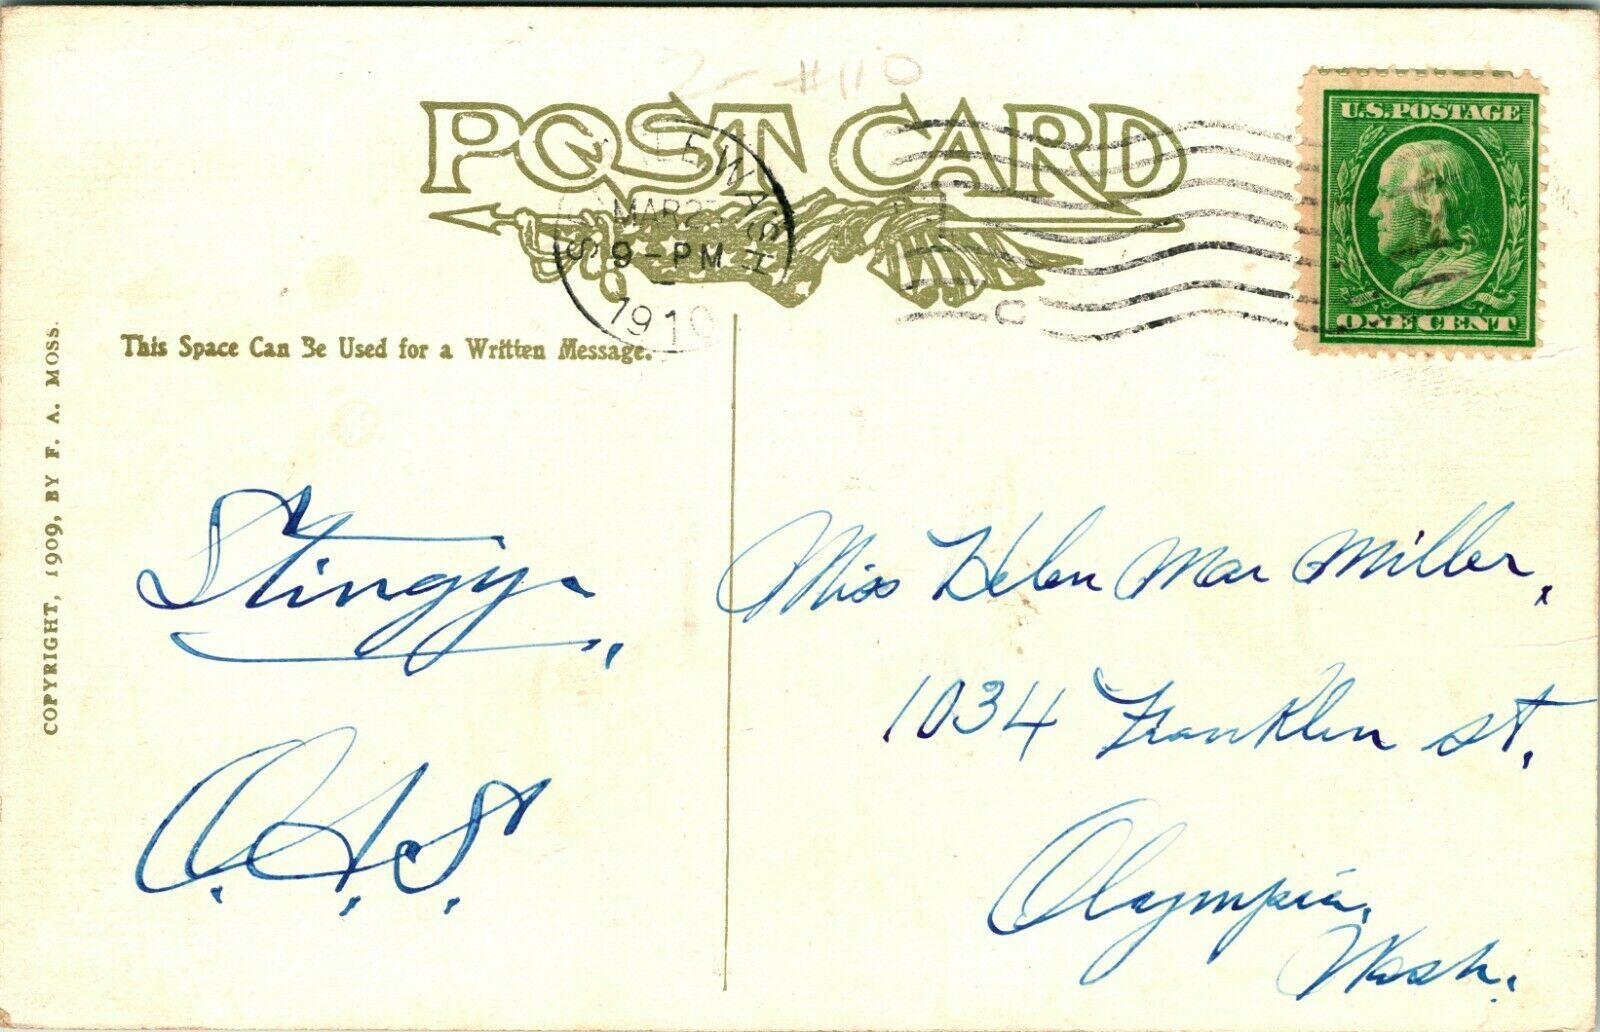 #110
POST CARD
SEATTLE WASH
MAR 2
9-PM
1910
C
U.S. POSTAGE
ONE CENT
This Space Can Be Used for a Written Message.
COPYRIGHT, 1909, BY F. A. MOSS.
Stingy.
Miss Helen Mar Miller,
1034 Franklin St.
Olympia,
Wash.